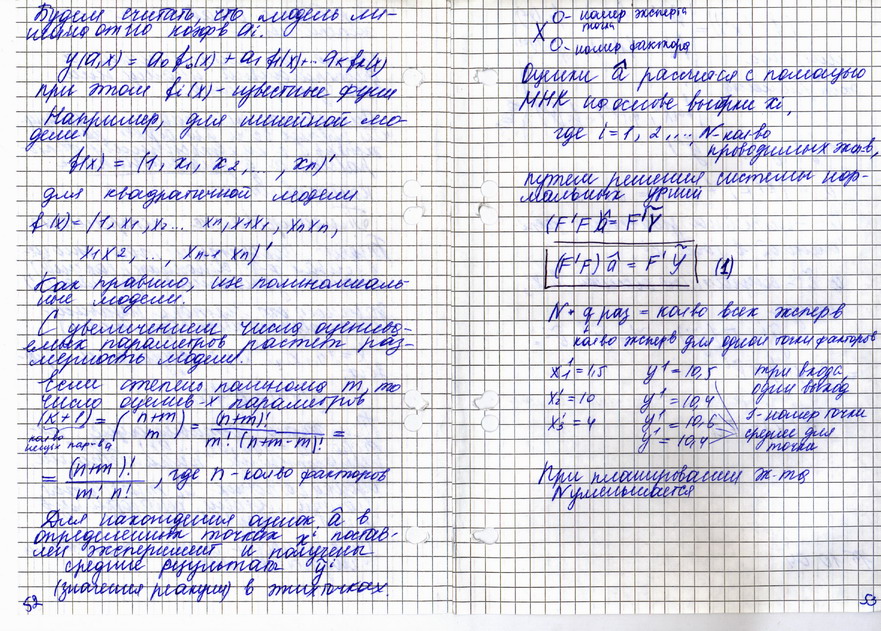 Будем считать, что модель ли-
нейна отн-но коэфф-в ai.
y(a,x) = a0 f0(x) + a1 f1(x)+... ak fk(x)
при этом fi(x) - известные функ
Например, для линейной мо-
дели
f(x) = (1, x1, x2, ..., xn)'
для квадратичной модели
f(x) = (1, x1, x2... xn, x1x1, xnxn,
x1x2, ..., xn-1 xn)'
Как правило, полиномиаль-
ные модели.
С увеличением числа оценива-
емых параметров растет раз-
мерность модели.
Если степень полинома m, то
число оценив-х параметров
(k+1) = (n+m m) = (n+m)! / m! (n+m-m)! =
кол-во пар-в a
= (n+m)! / m! n! , где n - кол-во факторов
Для нахождения оценок â в
определенных точках xⁱ постав-
лен эксперимент и получены
средние результат ỹⁱ
(значения реакции) в этих точках.
52
X О - номер эксперта
точка
О - номер фактора
Оценки â с помощью
МНК на основе выборки xi,
где i = 1, 2, ..., N - кол-во
проводимых эк-в,
путем решения системы нор-
мальных
(F'F) â = F'Ỹ
(F'F) â = F' Ỹ (1)
N • q раз = кол-во всех эксперв
кол-во эксперв для одной точки факторов
x¹1 = 1,5 y¹ = 10,5 три входа,
один выход
x¹2 = 10 y¹ = 10,4
x¹3 = 4 y¹ = 10,6 1 - номер точки
y¹ = 10,4 среднее для
точка
При планировании эк-та
N уменьшается
53